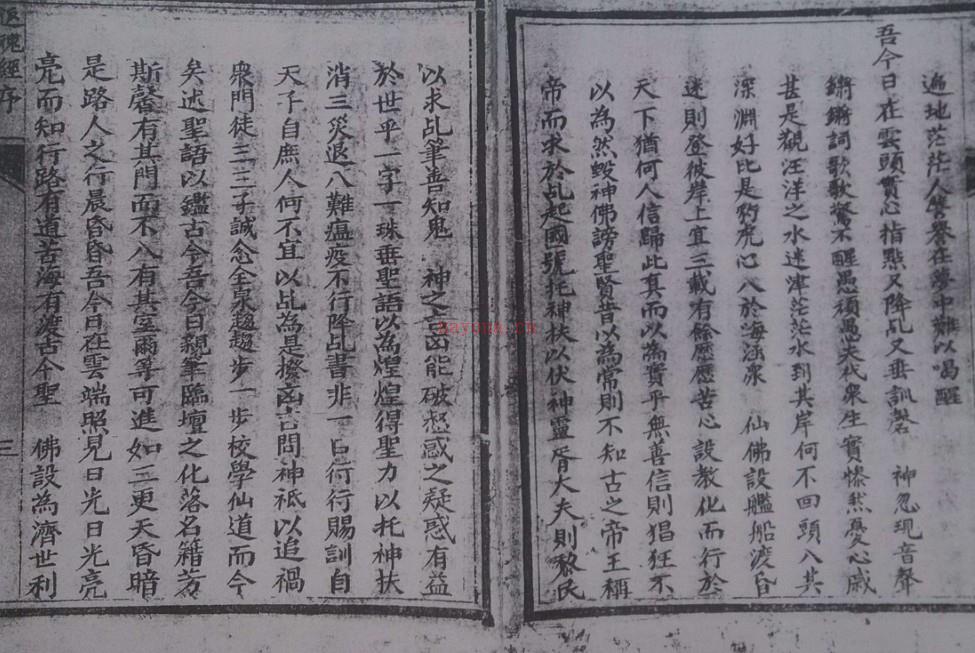 遍地茫茫人營營在夢中難以喝醒
吾今日在雲頭實心指點又降乩又垂訓聲 神忽現音聲
鏘鏘詞歌歌聲不醒愚頑愚夫代衆生實慘然憂心慼
甚是觀汪洋之水迷津茫茫水到其岸何不回頭入其
深淵好比是豹虎心入於海涵衆 仙佛設艦船渡昏
迷則登彼岸上宜三載有餘應應苦心設教化而行於
天下猶何人信歸此真而以為實乎無善信則猖狂不
以為然毀神佛謗聖賢昔以為常則不知古之帝王稱
帝而求於乩起國號托神扶以伏神靈胥大夫則黎民
以求乩筆善知鬼 神之言函能破愆惑之疑惑有益
於世乎一字一珠垂聖語以為煌煌得聖力以托神扶
消三災退八難瘟疫不行降乩書非一日行行賜訓自
天子自庶人何不宜以乩為是擬函言問神祗以追禍
衆門徒三三子誠念全泉趨趨步一步校學仙道而今
矣述聖語以鑑古今吾今日親筆臨壇之化落名籍芳
斯馨有其門而不入有其室爾等可進如三更天昏暗
是路人之行晨昏昏吾今日在雲端照見日光日光亮
亮而知行路有道苦海有渡古今聖 佛設為濟世利
愧經序
三